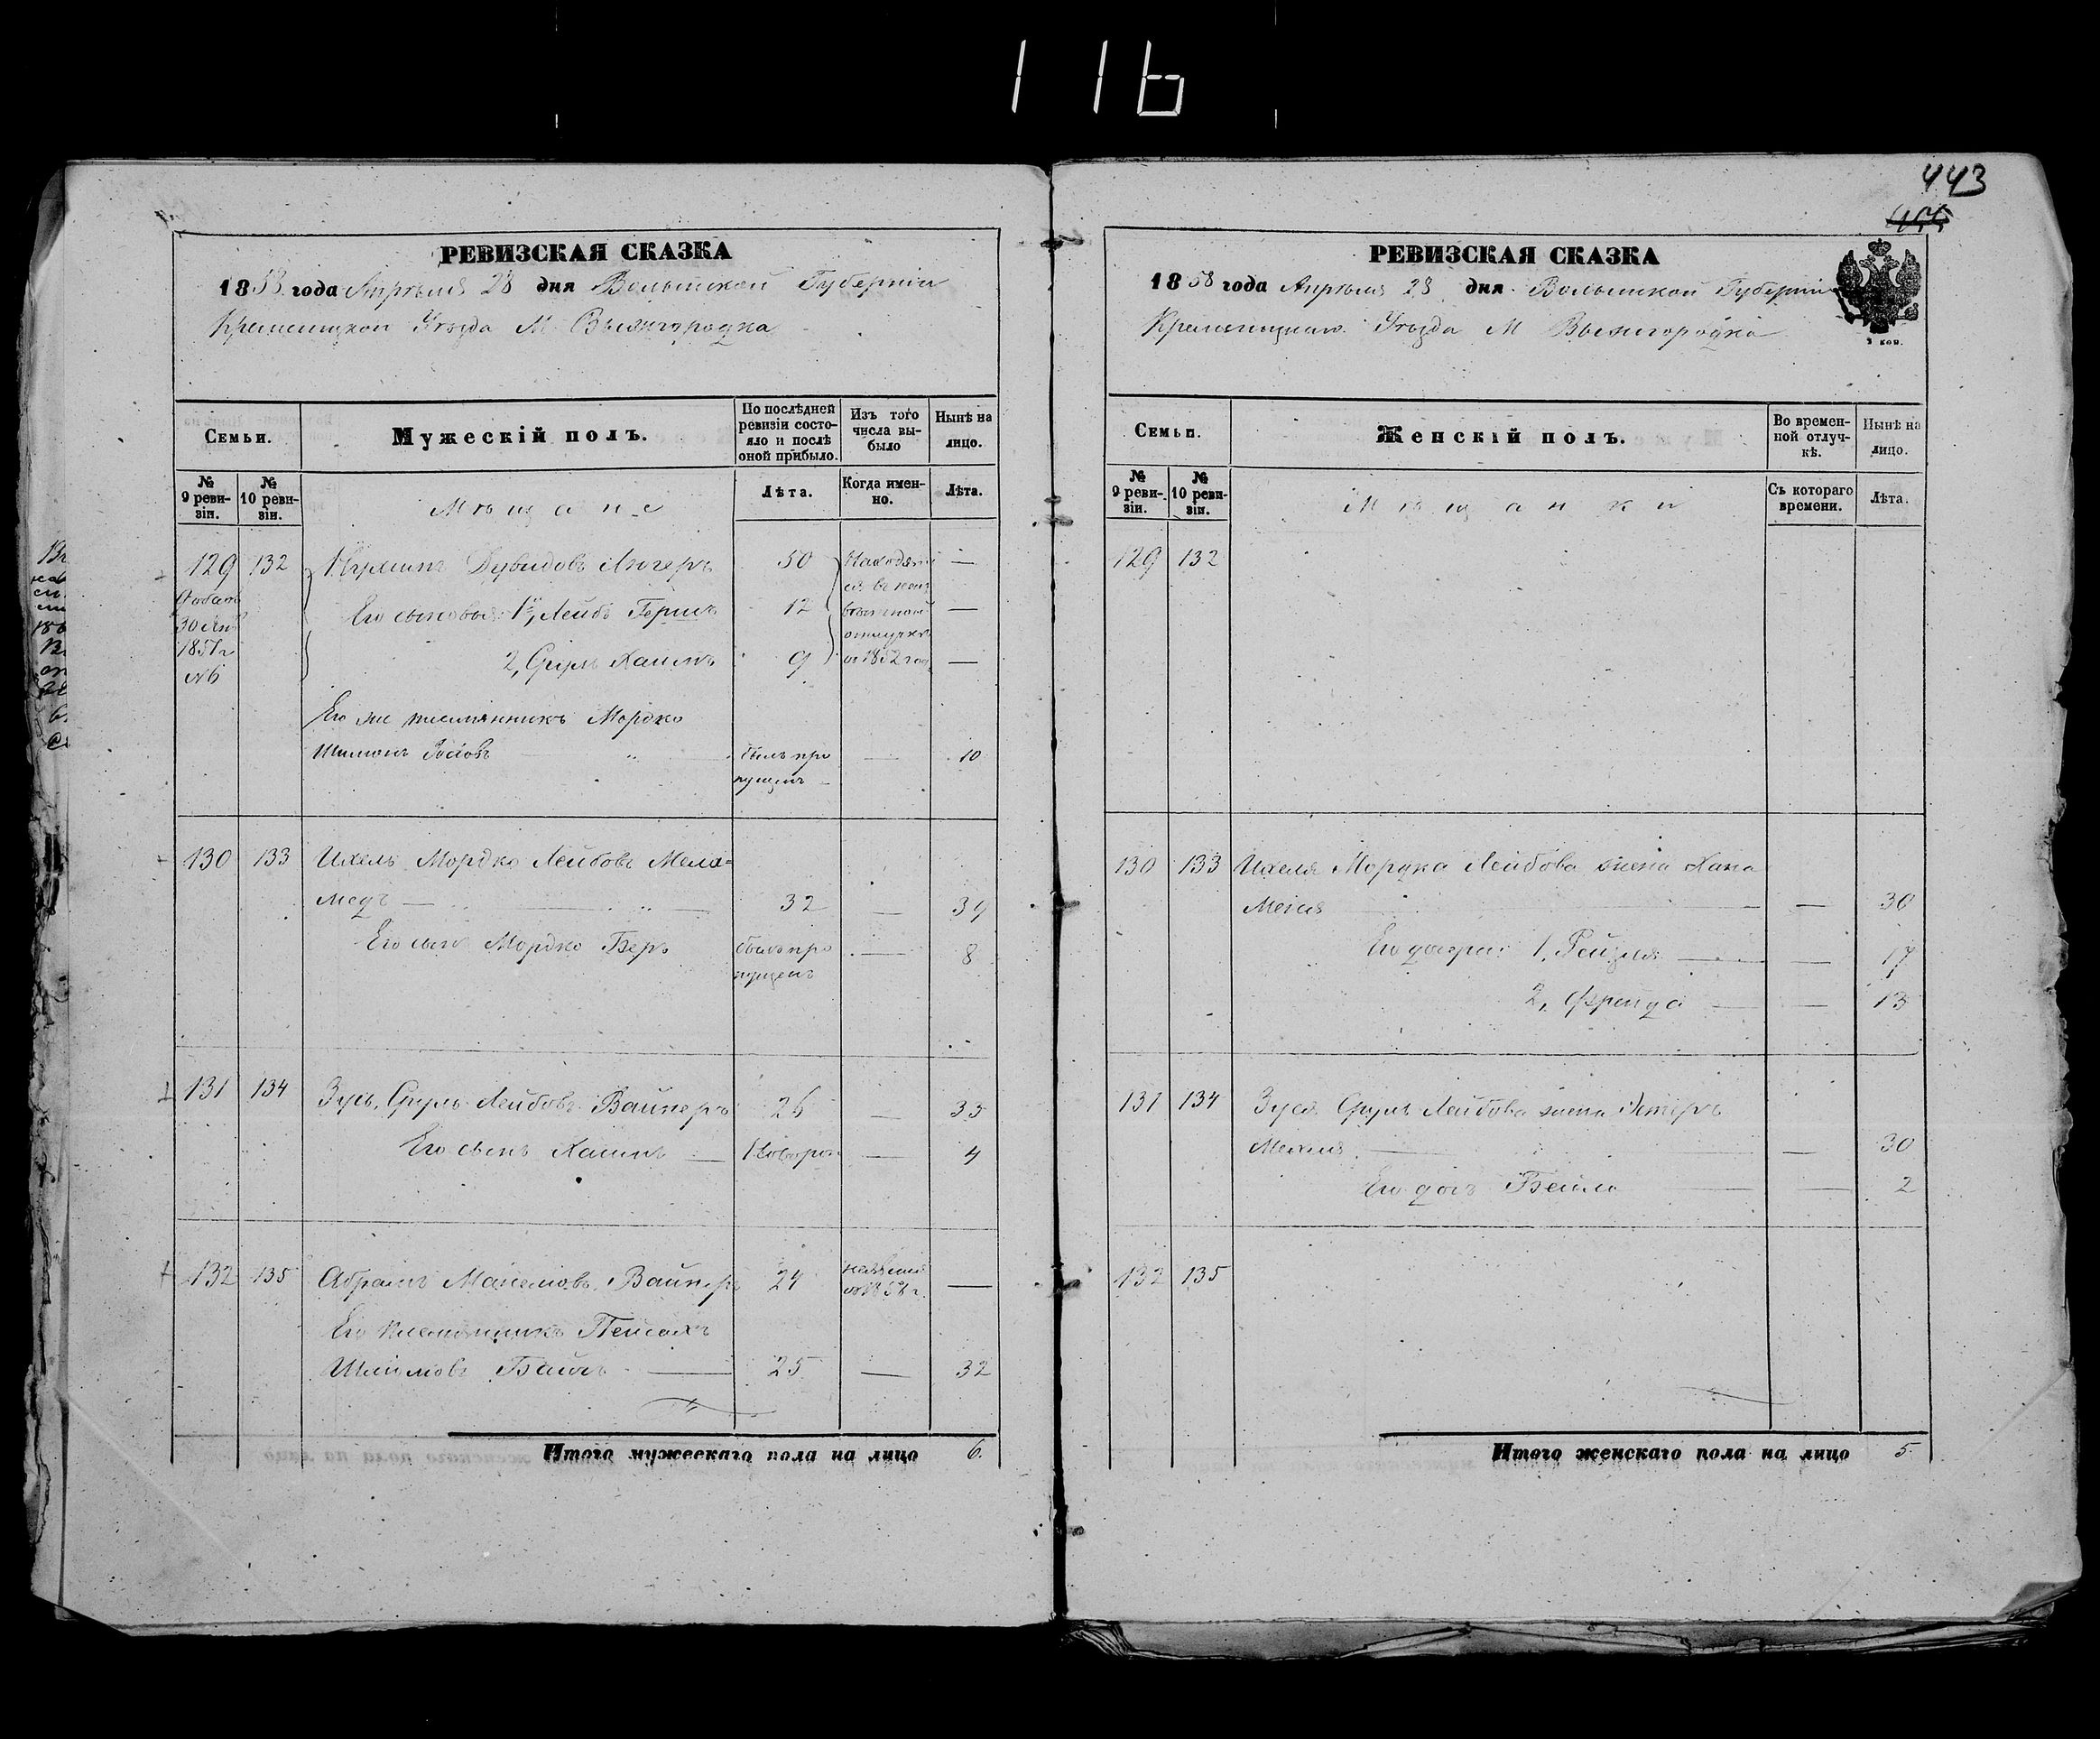 116
443
РЕВИЗСКАЯ СКАЗКА
1858 года Апрѣля 28 дня Волынской Губерніи
Кременецкого Уѣзда М. Вышгородка
Семьи.
Мужескій полъ.
По послѣдней ревизіи состо-
яло и послѣ
оной прибыло.
Изъ того
числа вы-
было
Нынѣ на
лицо.
№
9 реви-
зіи.
№
10 реви-
зіи.
Мѣщане
Лѣта.
Когда имен-
но.
Лѣта.
129 132 Дувидовъ 50 —
30
1851
№6
Его сыновья: 1, Лейбъ Гершъ 12 —
2, Сруль Хаимъ 9 —
отлучкѣ
1852
Его же племянникъ Мордко
Шимонъ былъ про — 10
пущенъ
130 133 Ихель Мордко Лейбовъ Мела=
медъ — 32 — 39
Его сынъ Мордко Беръ былъ про — 8
пущенъ
131 134 Зусь Сруль Лейбовъ Вайнеръ 26 — 33
Его сынъ Хаимъ — Новорож — 4
132 135 Абрамъ Вайнеръ 24 —
Его племянникъ Пейсахъ
25 — 32
Итого мужескаго пола на лицо 6.
РЕВИЗСКАЯ СКАЗКА
1858 года Апрѣля 28 дня Волынской Губерніи
Кременецкого Уѣзда М Вышгородка
3 коп.
Семьи.
Женскій полъ.
Во времен-
ной отлуч-
кѣ.
Нынѣ на
лицо.
№
9 реви-
зіи.
№
10 реви-
зіи.
Мѣщанки
Съ котораго
времени.
Лѣта.
129 132
130 133 Ихеля Мордка Лейбова жена Хана
— 30
Его дочери: 1, Рейзля — — 17
2, Фрейда — — 13
131 134 Зуся Сруль Лейбова жена
— 30
Его дочь Бейла — 2
132 135
Итого женскаго пола на лицо 5